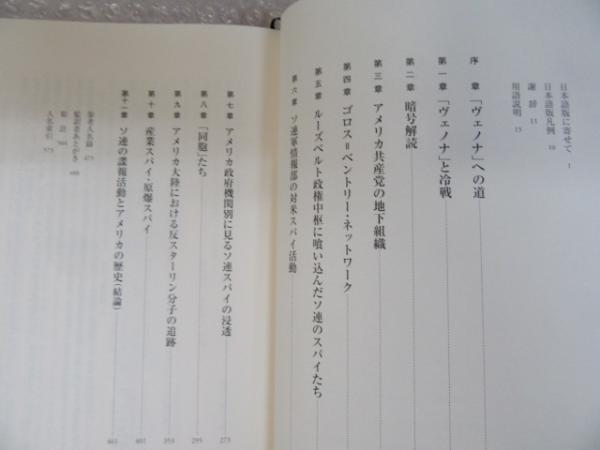 日本語版に寄せて 1
日本語版凡例 10
謝辞 11
用語説明 15
序章 「ヴェノナ」への道
第一章 「ヴェノナ」と冷戦
第二章 暗号解読
第三章 アメリカ共産党の地下組織
第四章 ゴロス＝ベントリー・ネットワーク
第五章 ルーズベルト政権中枢に喰い込んだソ連のスパイたち
第六章 ソ連軍情報部の対米スパイ活動
第七章 アメリカ政府機関別に見るソ連スパイの浸透 273
第八章 「同胞」たち 295
第九章 アメリカ大陸における反スターリン分子の追跡 353
第十章 産業スパイ・原爆スパイ
第十一章 ソ連の諜報活動とアメリカの歴史（結論）
参考人名録
監訳者あとがき
原註
人名索引 573